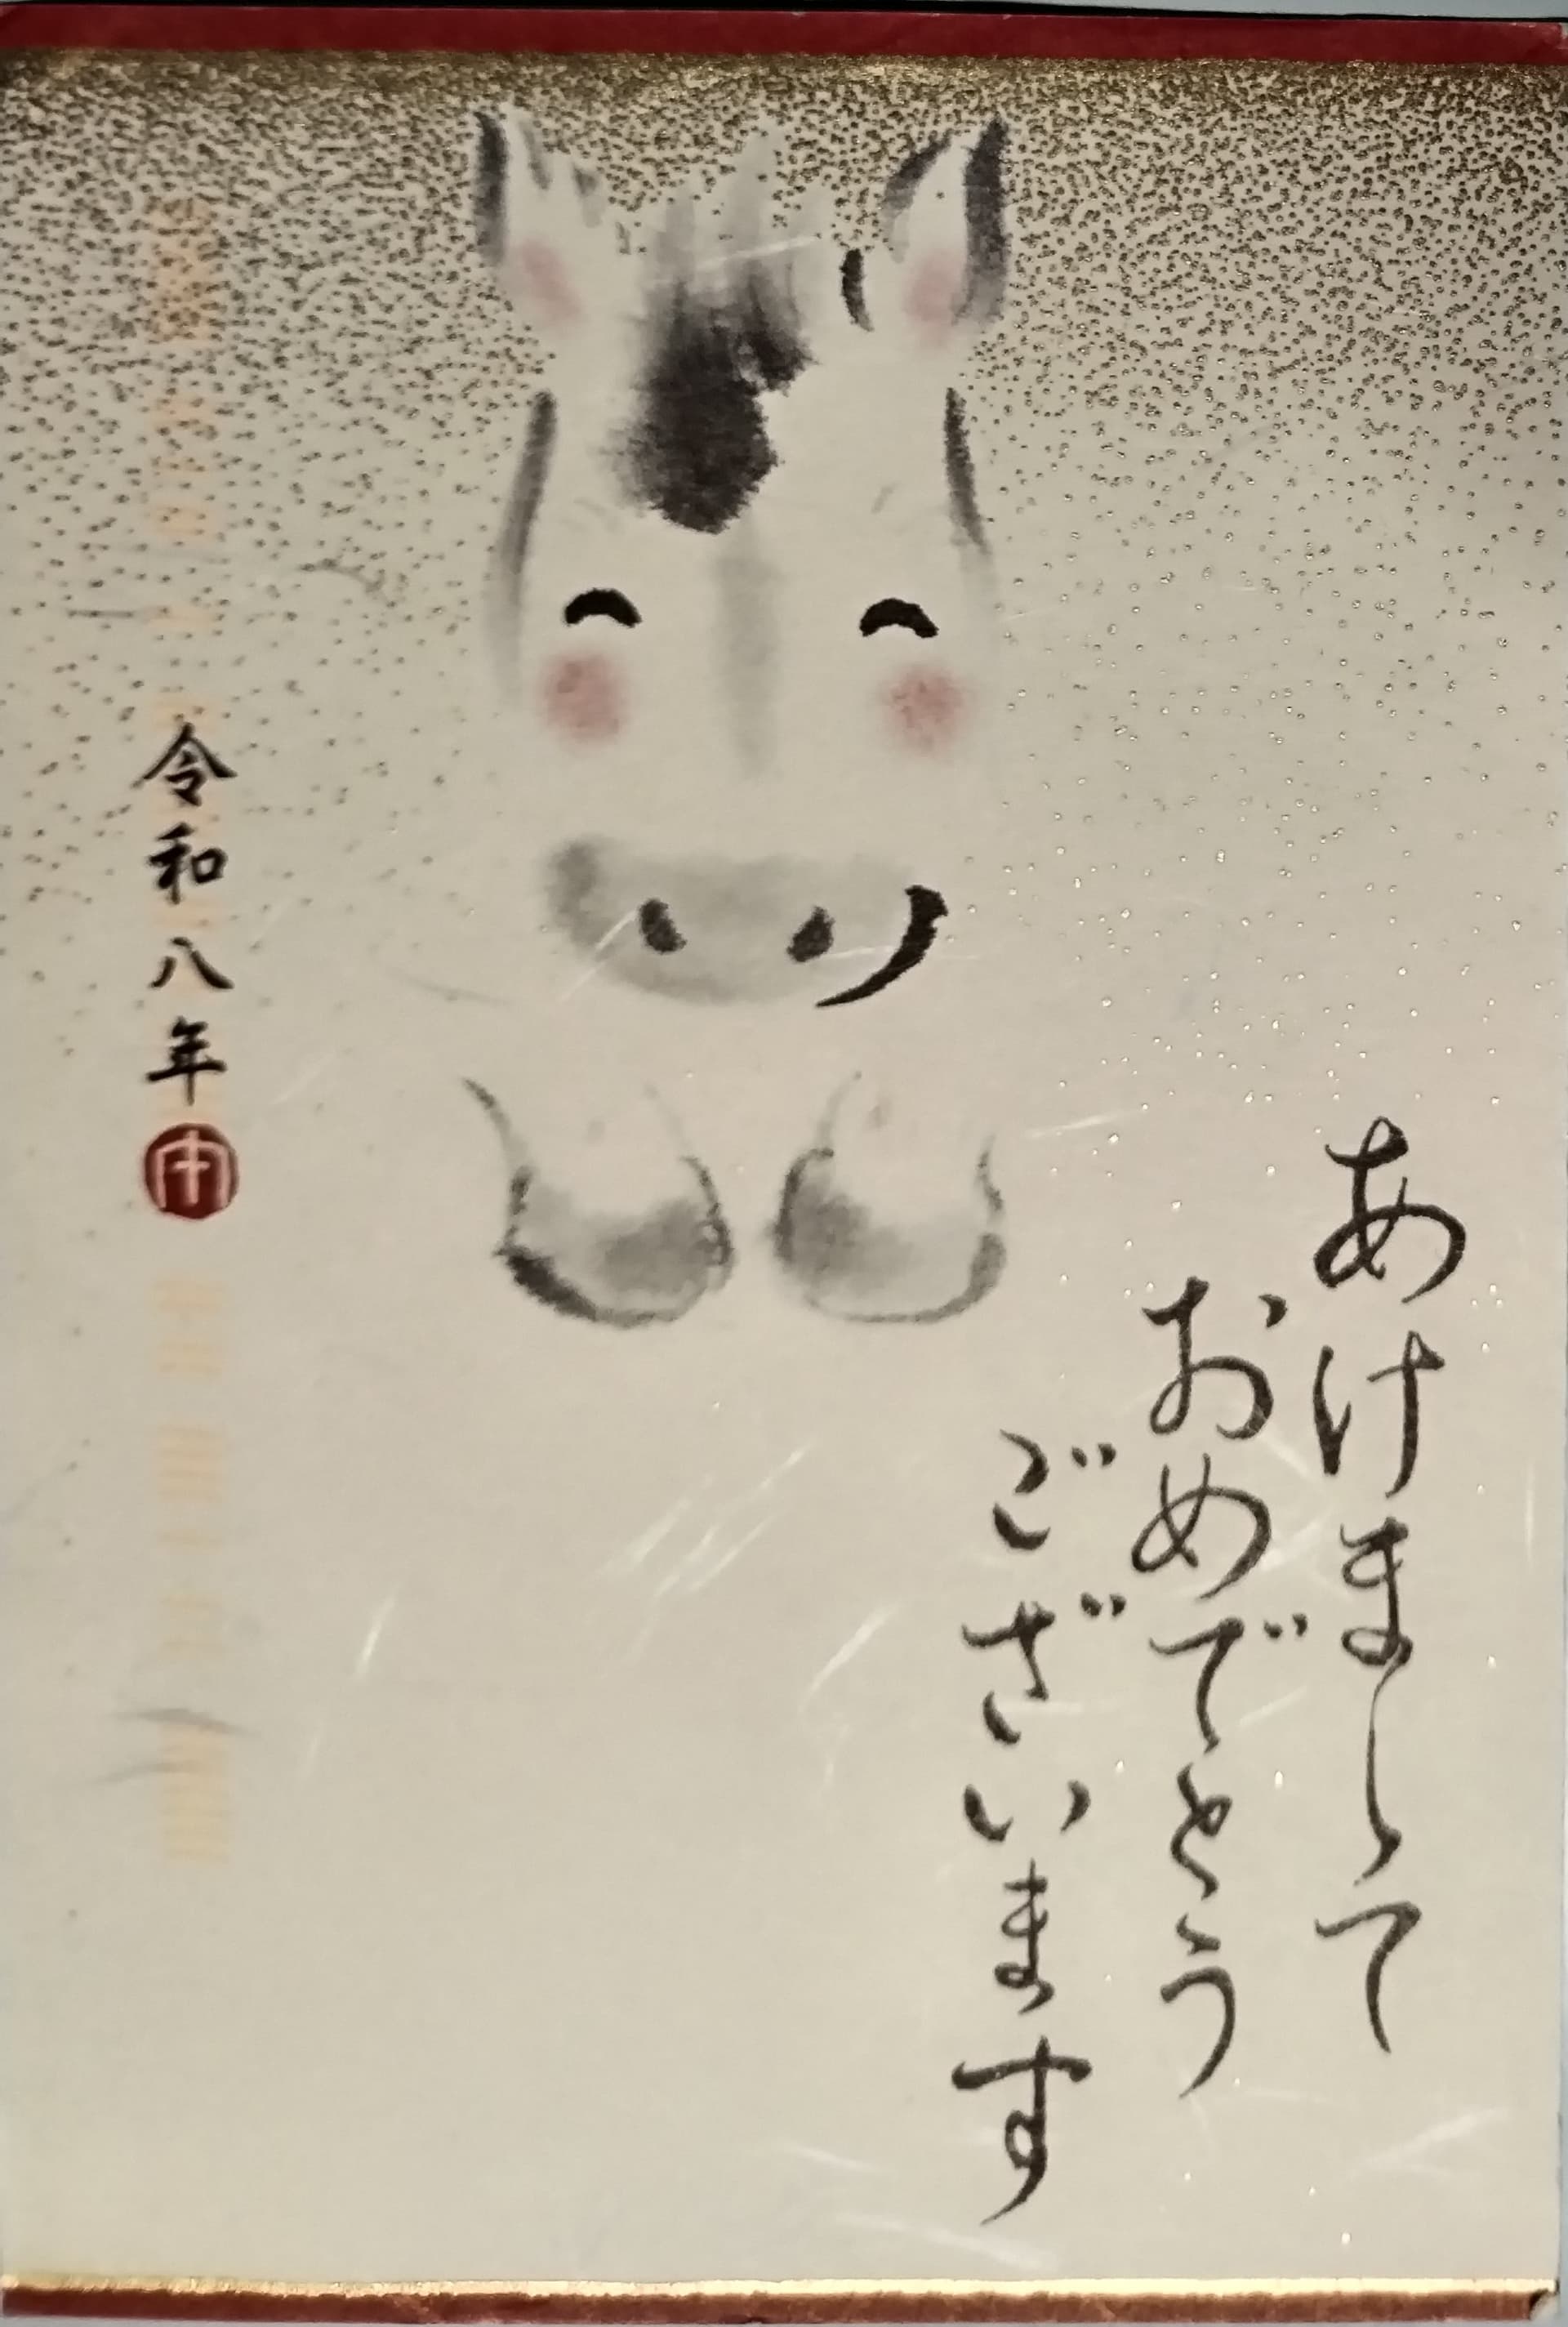 あけまして
おめでとう
ございます
令和八年